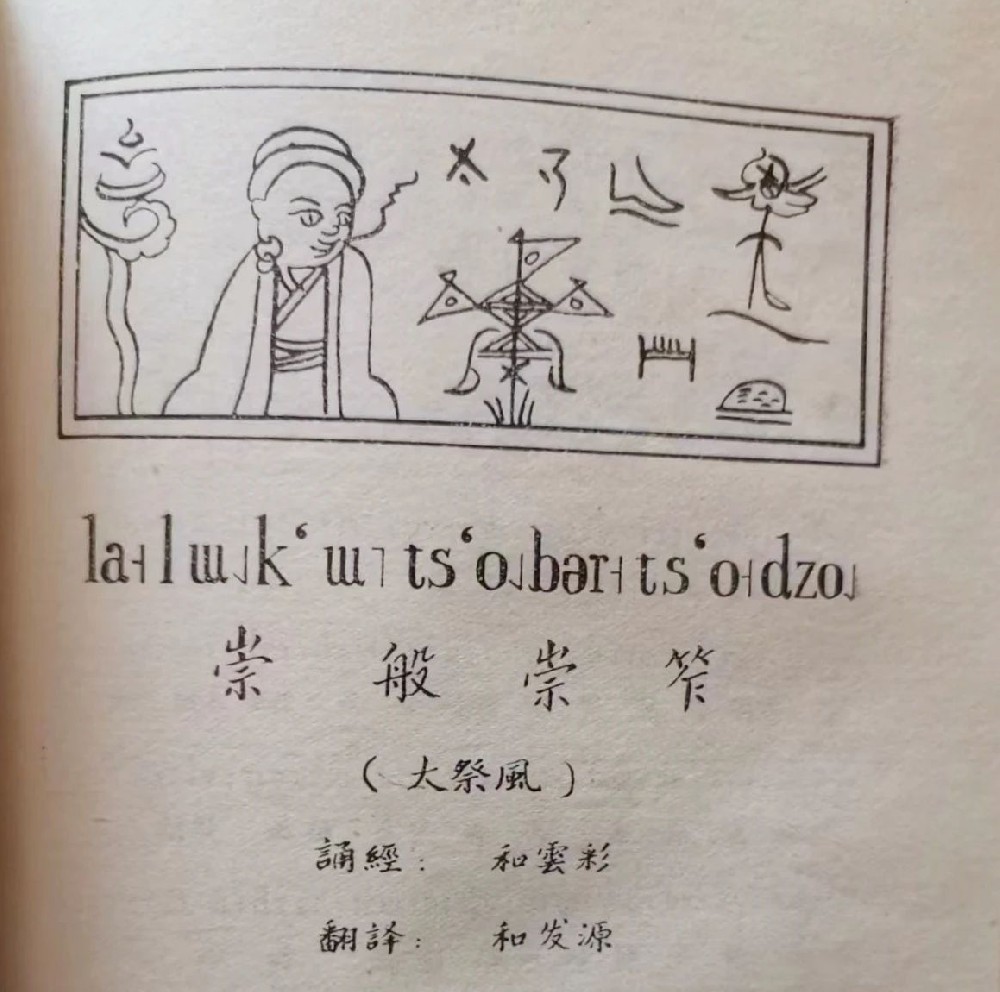 la˧lɯ˩kʻɯ˥tsʻo˩bər˧tsʻo˧dzo˩
崇般崇笮
（大祭風）
誦經：和雲彩
翻譯：和发源